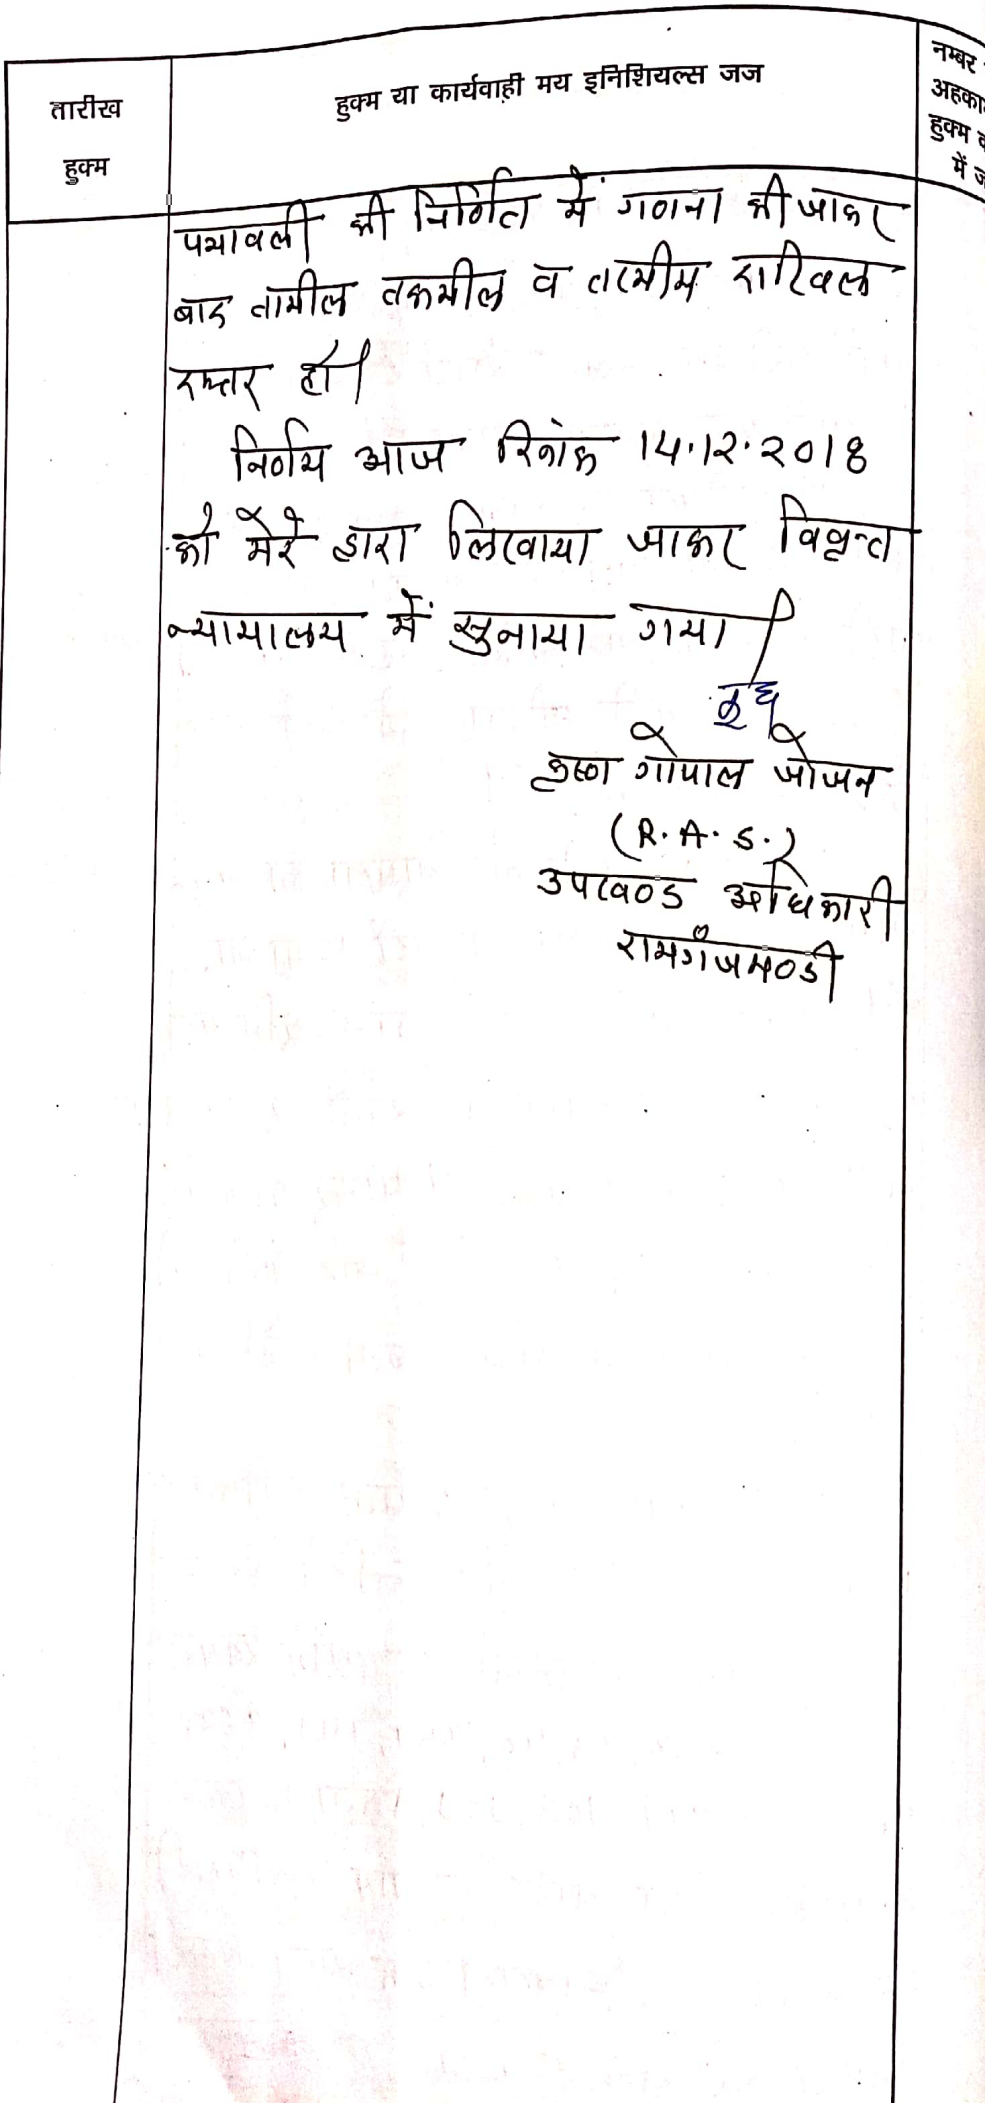 तारीख
हुक्म
हुक्म या कार्यवाही मय इनिशियल्स जज
नम्बर
अहका
हुक्म
में ज
पत्रावली की निर्णित में गणना की जाकर
बाद तामील तकमील व तरमीम दाखिल
दफ्तर हो।
निर्णय आज दिनांक 14.12.2018
को मेरे द्वारा लिखवाया जाकर विवृत्त
न्यायालय में सुनाया गया।
कृष्ण गोपाल जोजन
(R.A.S.)
उपखण्ड अधिकारी
रामगँजमण्डी